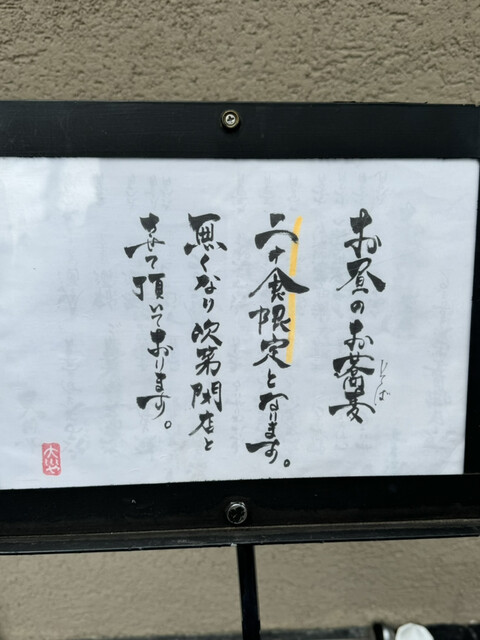 お昼のお蕎麦
そば
二十食限定となります。
無くなり次第閉店と
させて頂いております。
大川や